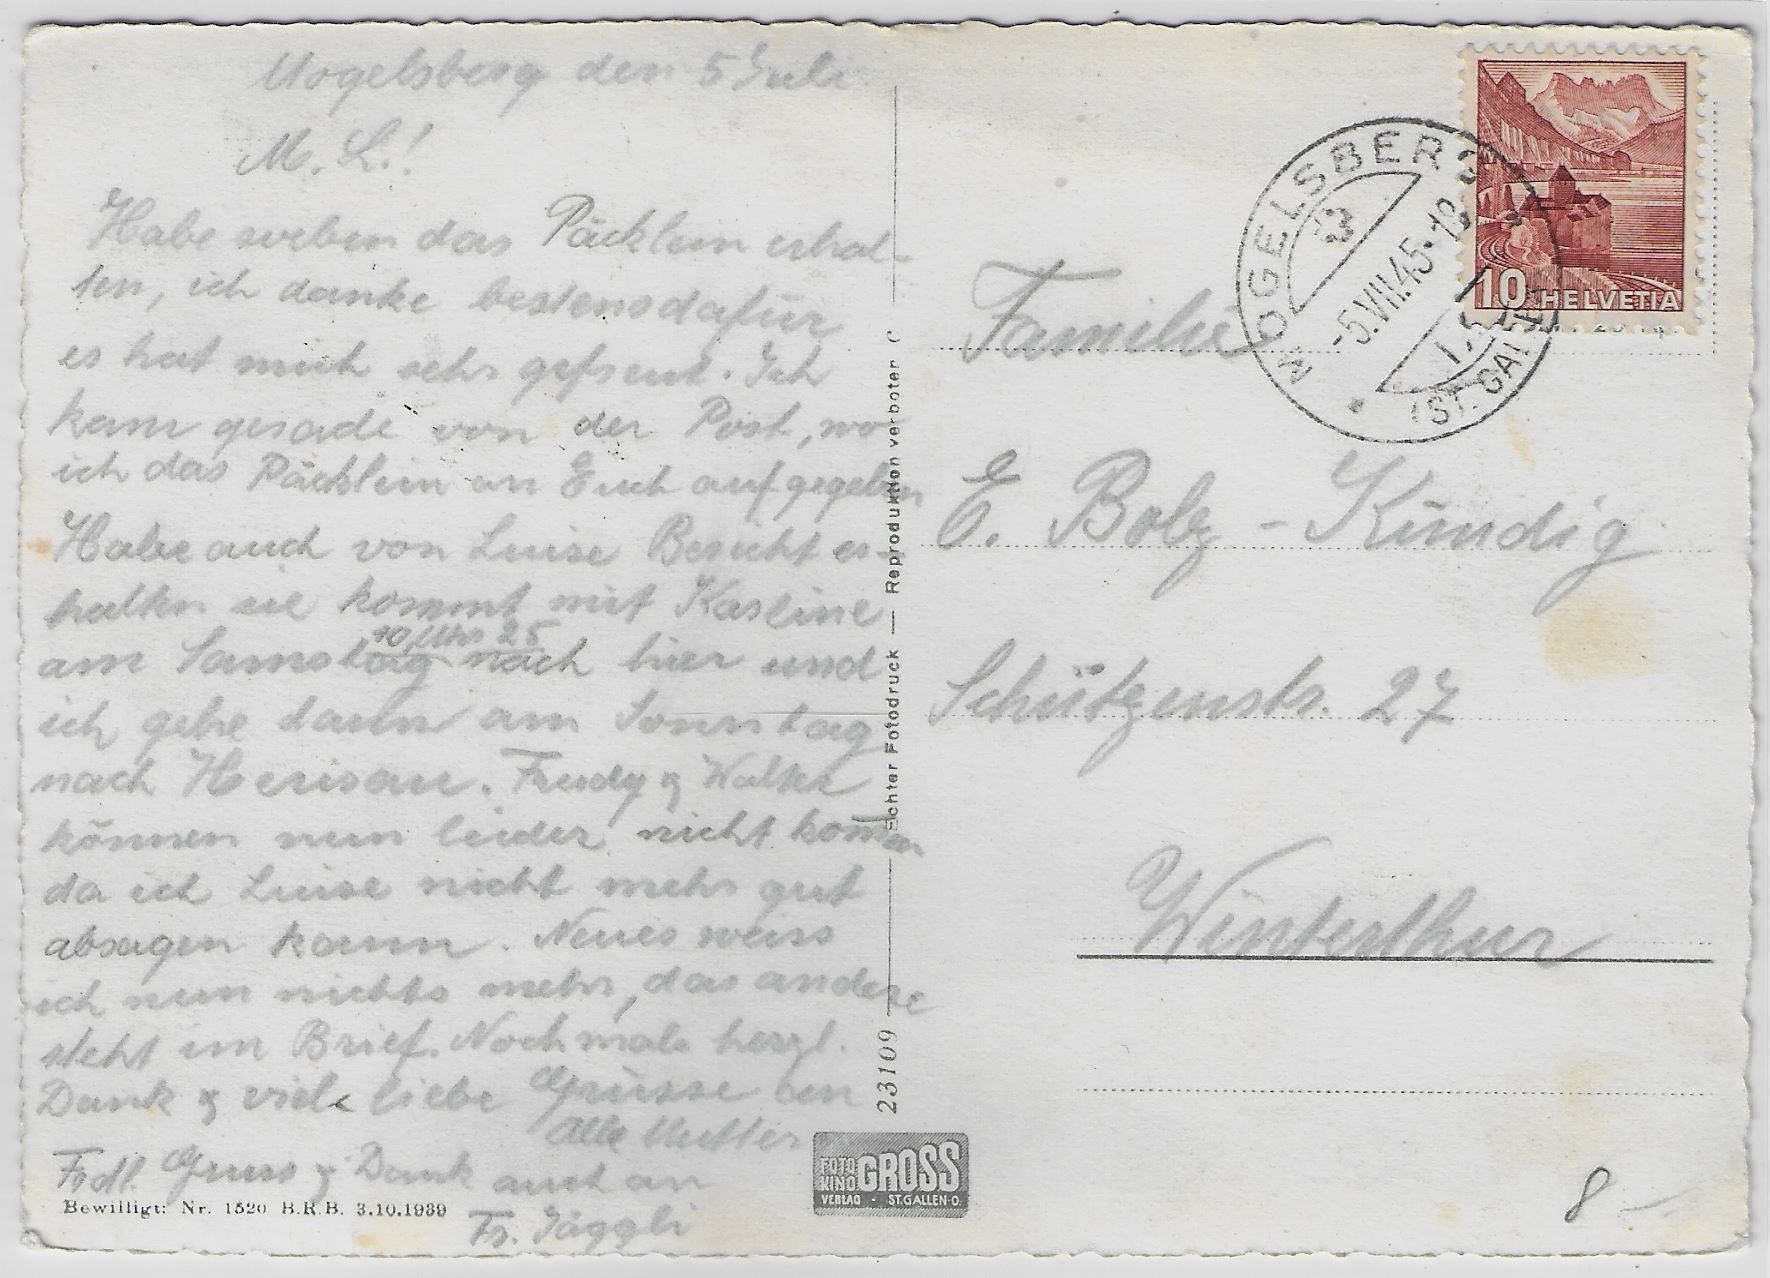 Mogelsberg den 5 Juli
M. L.!
Habe soeben das Päcklein erhal-
ten, ich danke bestens dafür
es hat mich sehr gefreut. Ich
kam gerade von der Post, wo
ich das Päcklein an Euch aufgegeben
Habe auch von Luise Bericht er-
halten sie kommt mit Karline
10 Uhr 25
am Samstag nach hier und
ich gehe dann am Sonntag
nach Herisau. Trudy & Walter
können nun leider nicht kommen
da ich Luise nicht mehr gut
absagen kann. Neues weiss
ich nun nichts mehr, das andere
steht im Brief. Nochmals herzl.
Dank & viele liebe Grüsse an
Alle Mutter
Frdl. Gruss & Dank auch an
Fr. Jäggli
Bewilligt: Nr. 1520 B.R.B. 3.10.1939
23109 — Echter Fotodruck — Reproduktion verboten
FOTO KINO GROSS
VERLAG - ST.GALLEN-O.
10 HELVETIA
MOGELSBERG
-5.VII.45-18
(ST. GALLEN)
Familie
E. Bolz - Kündig
Schützenstr. 27
Winterthur
8 –